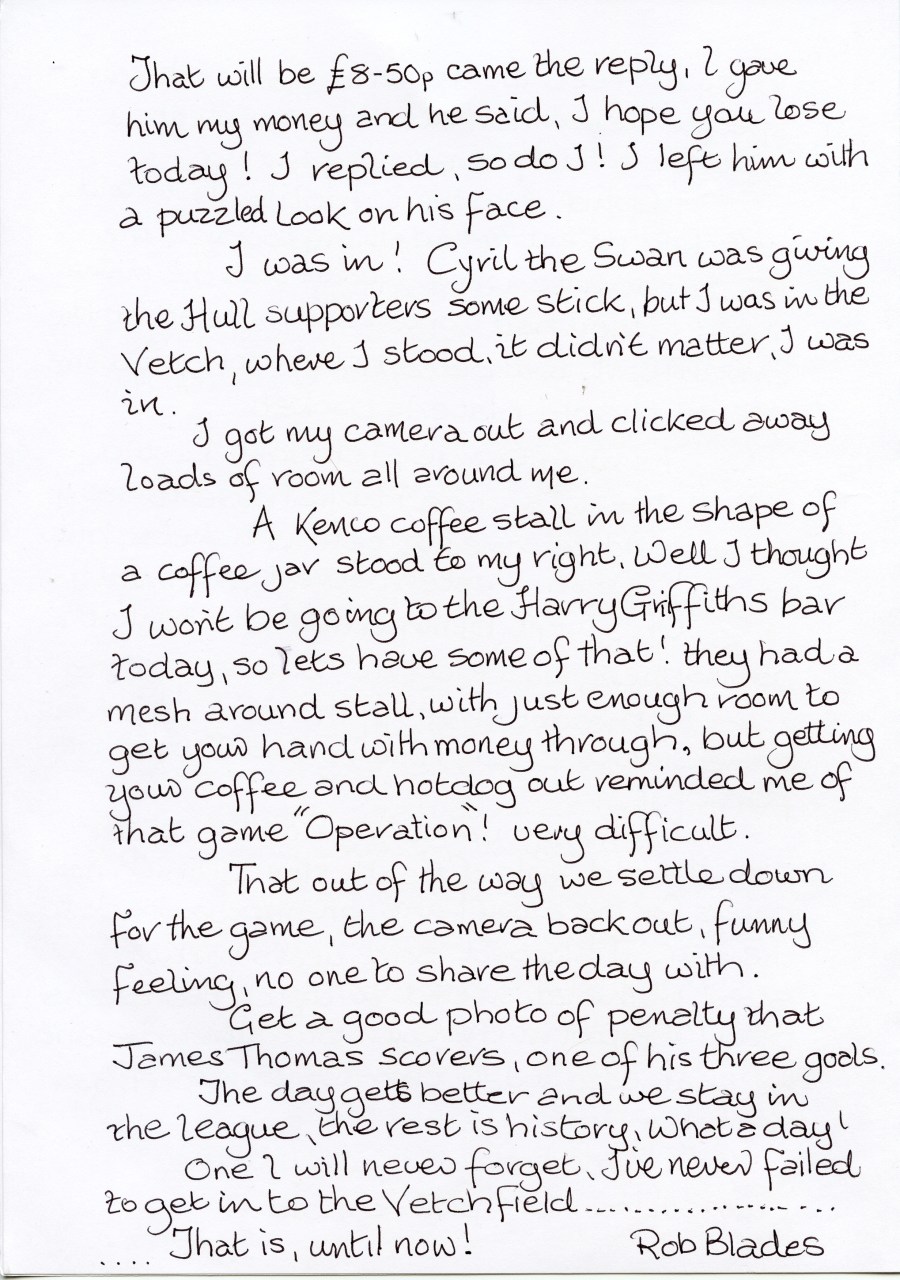 That will be £8-50p came the reply, I gave
him my money and he said, I hope you lose
today! I replied, so do I! I left him with
a puzzled look on his face.
I was in! Cyril the Swan was giving
the Hull supporters some stick, but I was in the
Vetch, where I stood, it didn't matter, I was
in.
I got my camera out and clicked away
loads of room all around me.
A Kenco coffee stall in the shape of
a coffee jar stood to my right. Well I thought
I won't be going to the Harry Griffiths bar
today, so lets have some of that! they had a
mesh around stall, with just enough room to
get your hand with money through, but getting
your coffee and hotdog out reminded me of
that game "Operation"! very difficult.
That out of the way we settle down
for the game, the camera back out, funny
feeling, no one to share the day with.
Get a good photo of penalty that
James Thomas scorers, one of his three goals.
The day gets better and we stay in
the league, the rest is history, what a day!
One I will never forget, I've never failed
to get in to the Vetchfield...................
.... That is, until now! Rob Blades